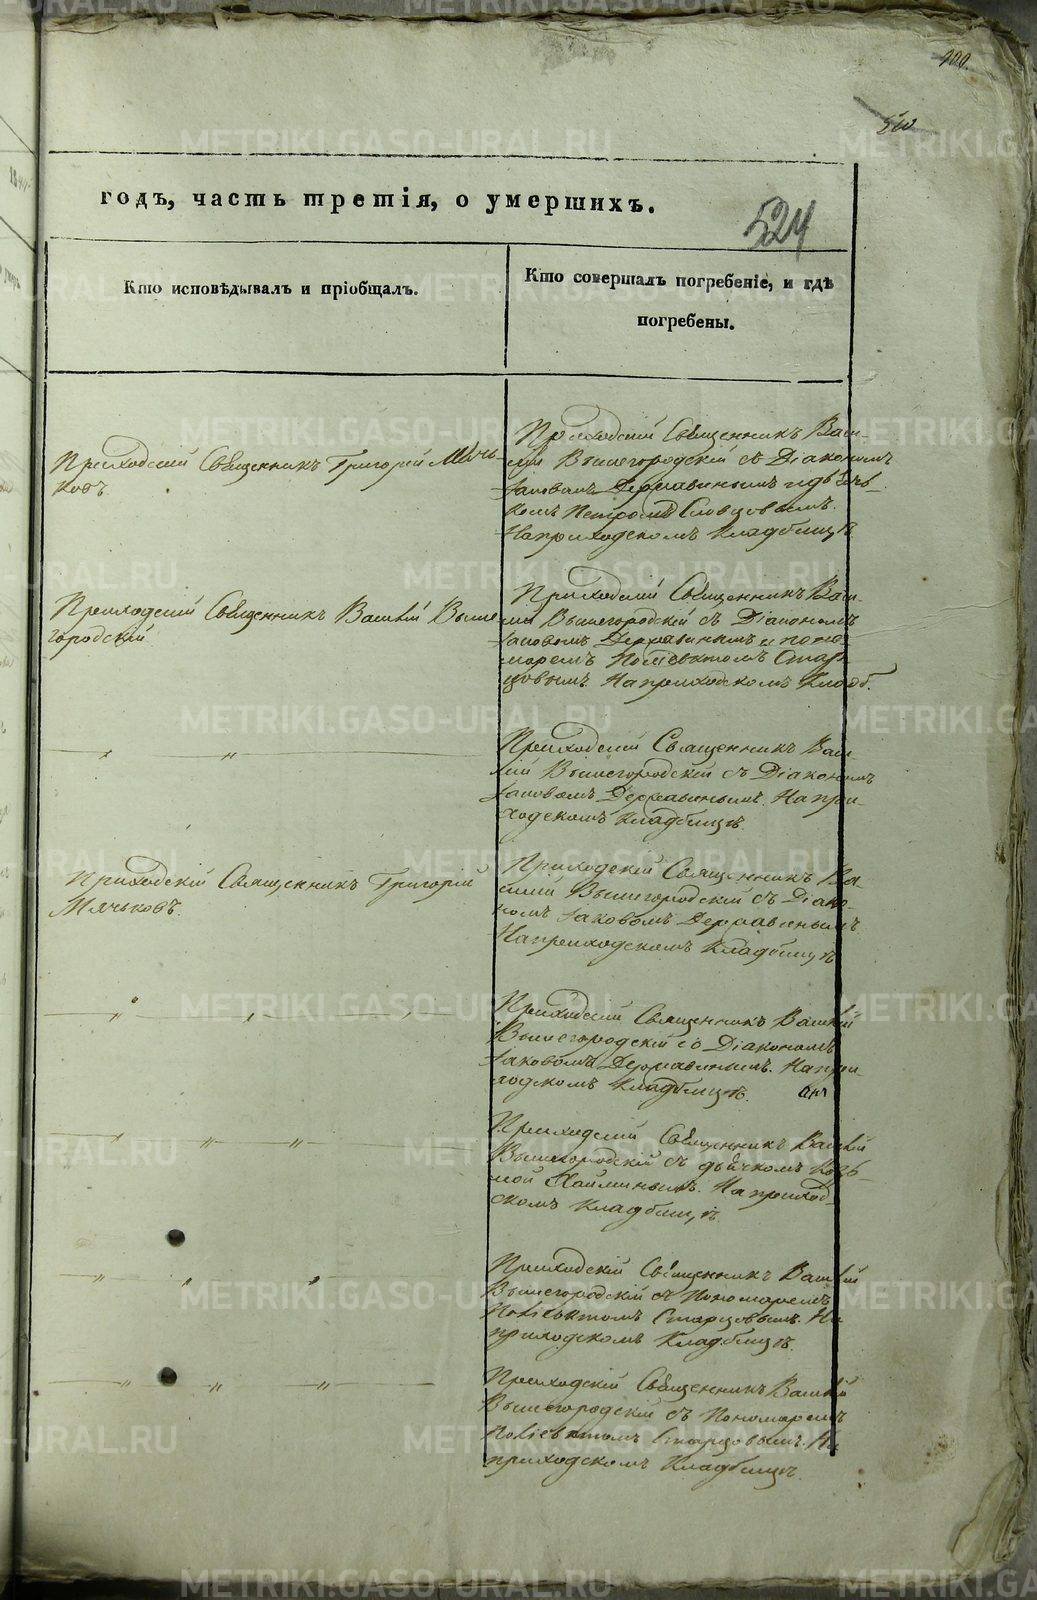 100.
524
годъ, часть третія, о умершихъ.
Кто исповѣдывалъ и пріобщалъ.
Кто совершалъ погребеніе, и гдѣ
погребены.
Приходскій Священникъ Григорій Мячь-
ковъ
Приходскій Священникъ Васи-
лій Вышегородскій съ Діакономъ
Іаковомъ Державинымъ
Петромъ Словцовымъ.
На приходскомъ Кладбищѣ
Приходскій Священникъ Василій Выше
городскій
Приходскій Священникъ Васи-
лій Вышегородскій съ Діакономъ
Іаковомъ Державинымъ и поно
маремъ Поліевктомъ Стар
цовымъ. На приходскомъ Кладб.
Приходскій Священникъ Васи-
лій Вышегородскій съ Діакономъ
Іаковомъ Державинымъ. На при-
ходскомъ Кладбищѣ.
Приходскій Священникъ Григорій
Мячьковъ.
Приходскій Священникъ Ва-
силій Вышегородскій съ Діако-
номъ Іаковомъ Державинымъ
На приходскомъ Кладбищѣ
Приходскій Священникъ Василій
Вышегородскій со Діакономъ
Іаковомъ Державинымъ. На при-
ходскомъ Кладбищѣ.
Приходскій Священникъ Василій
Вышегородскій съ дьячкомъ Козь-
мой На приход-
скомъ Кладбищѣ.
Приходскій Священникъ Василій
Вышегородскій съ Пономаремъ
Поліевктомъ Старцовымъ. На
приходскомъ Кладбищѣ.
Приходскій Священникъ Василій
Вышегородскій съ Пономаремъ
Поліевктомъ Старцовымъ. На
приходскомъ Кладбищѣ.
METRIKI.GASO-URAL.RU